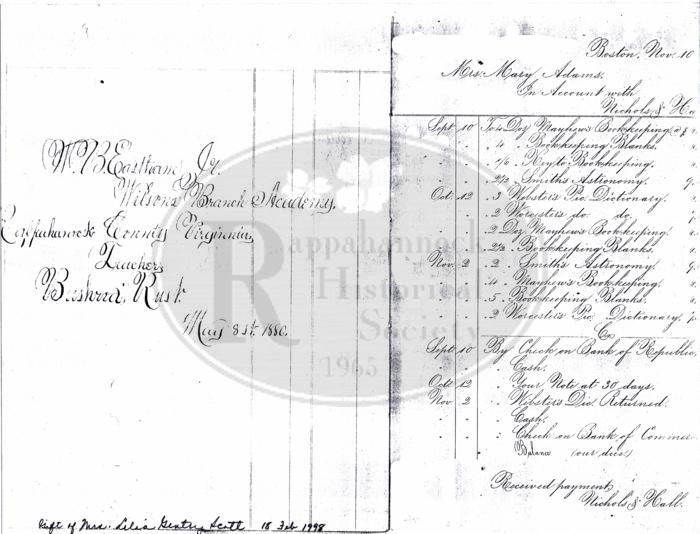 W. B. Eastham, Jr.
Wilsons Branch Academy,
Rappahannock County Virginia,
Teacher,
Rust.
May 8st. 1880.
Rappahannock
Historical
Society
1965
Gift of Mrs. Lilia Gentry Scott 18 Feb 1998
Boston, Nov. 10
Mrs. Mary Adams,
In Account with
Nichols &
Sept 10 To 4 Doz Mayhew's Bookkeeping
" " " 4 " Bookkeeping Blanks.
" " " Key to Bookkeeping.
" " " Smith's Astronomy.
Oct. 12 " 3 Webster's Pic. Dictionary.
" " " 2 Worcester's do. do.
" " " 2 Doz Mayhew's Bookkeeping.
" " " Bookkeeping Blanks.
Nov. 2 " 2 " Smith's Astronomy.
" " " 4 " Mayhew's Bookkeeping.
" " " 5 " Bookkeeping Blanks.
" " " 2 Worcester's Pic. Dictionary.
Cr.
Sept. 10 By Check on Bank of Republic
" " " Cash.
Oct. 12 " Your Note at 30 days.
Nov. 2 " Webster's Dic. Returned.
" " " Cash.
" " " Check on Bank of
" " Balance (our due)
Received payment,
Nichols & Hall.